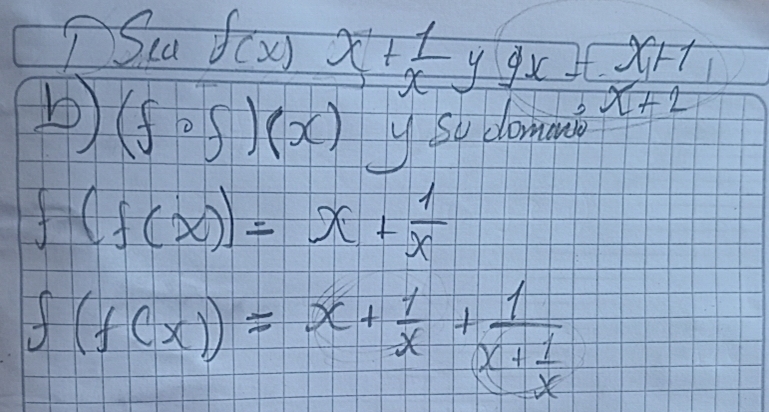 1) Sea f(x) x + 1/x y gx = x+1/x+2
b) (f∘f)(x) y su dominio
f(f(x)) = x + 1/x
f(f(x)) = x + 1/x + 1/(x + 1/x)